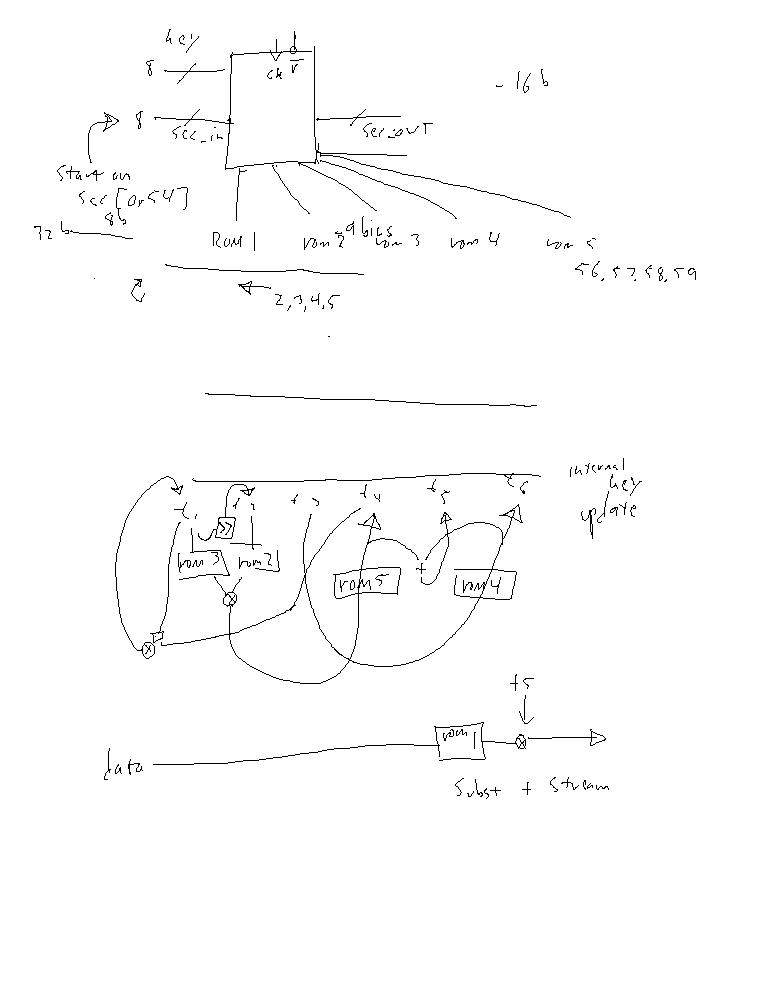 key
8
ck r
- 16 b
8 sec_in sec_out
start on
sec [0x54]
8b
32 b
Rom 1 rom 2 -9 bits rom 3 rom 4 rom 5
56, 57, 58, 59
2, 3, 4, 5
internal
key
update
t1 t2 t3 t4 t5 t6
>>
rom 3 rom 2 rom 5 + rom 4
t5
data rom 1
Subst + Stream